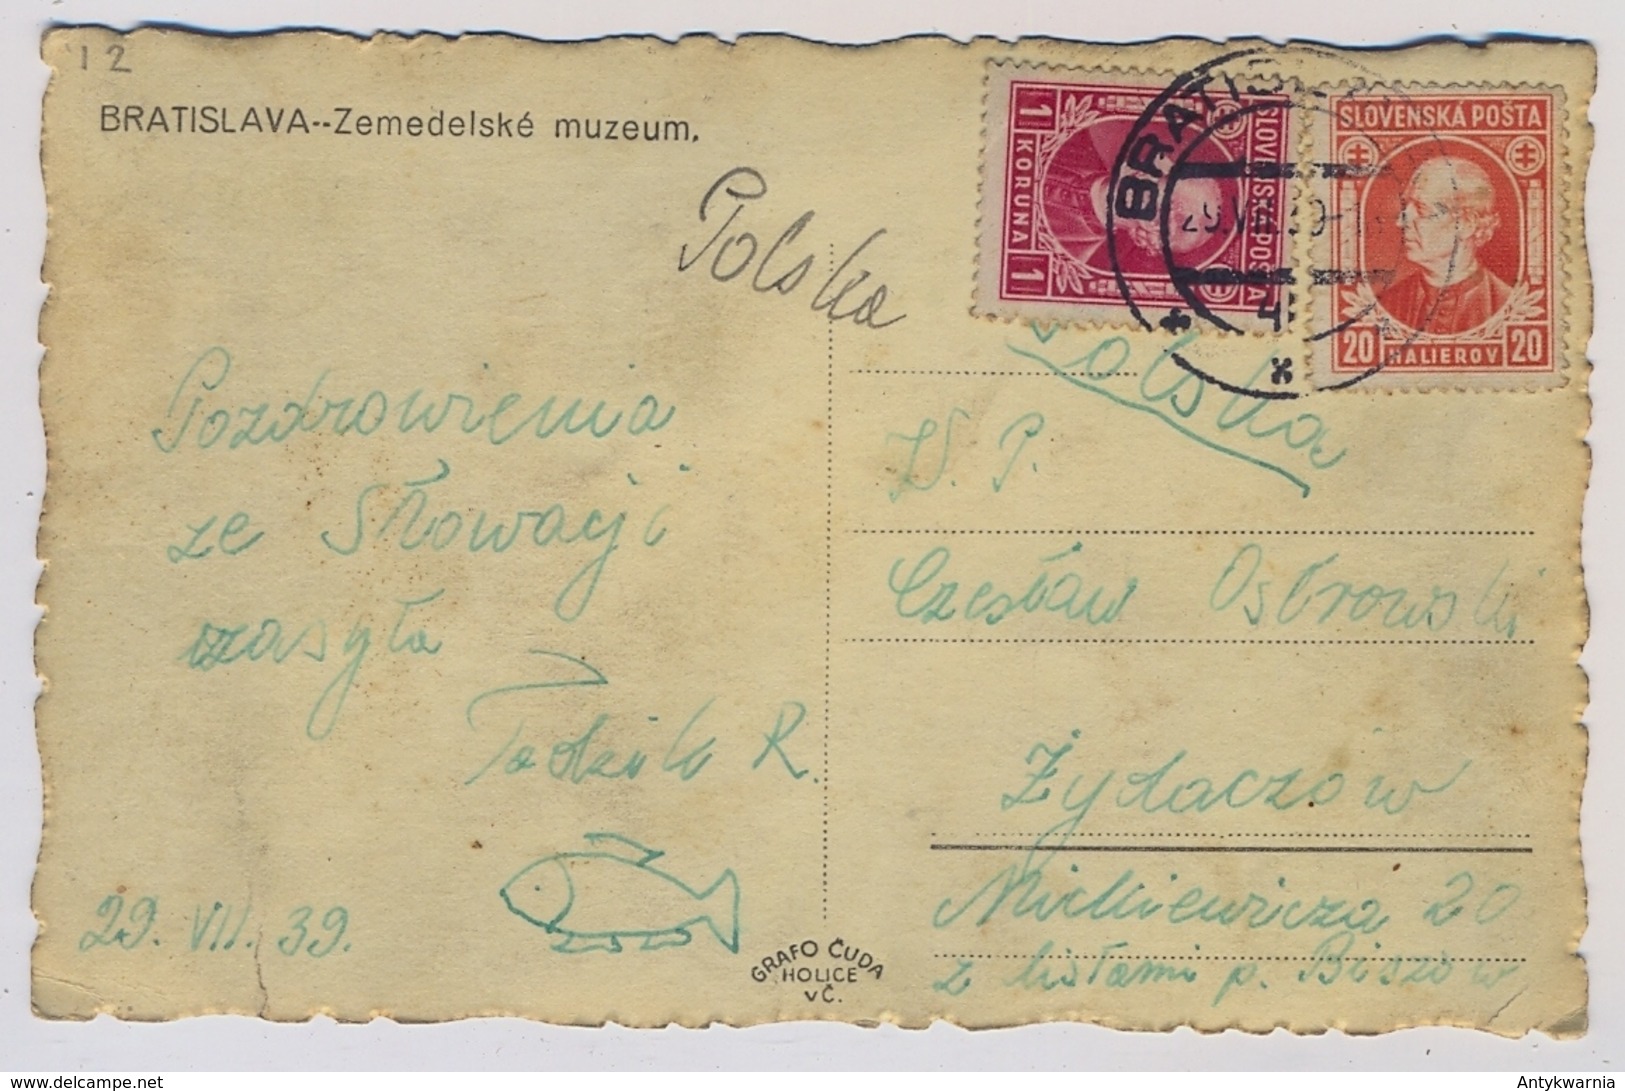 12
BRATISLAVA--Zemedelské muzeum.
Polska
1 KORUNA 1
SLOVENSKÁ POŠTA
BRATISLAVA
29.VII.39
SLOVENSKÁ POŠTA
20 HALIEROV 20
Polska
Pozdrowienia
ze Słowacji
zasyła
Tadzik R.
29. VII. 39.
W. P.
Czesław Ostrowski
Żydaczów
Mickiewicza 20
z listami p.
GRAFO ČUDA
HOLICE
v Č.
www.delcampe.net
Antykwarnia